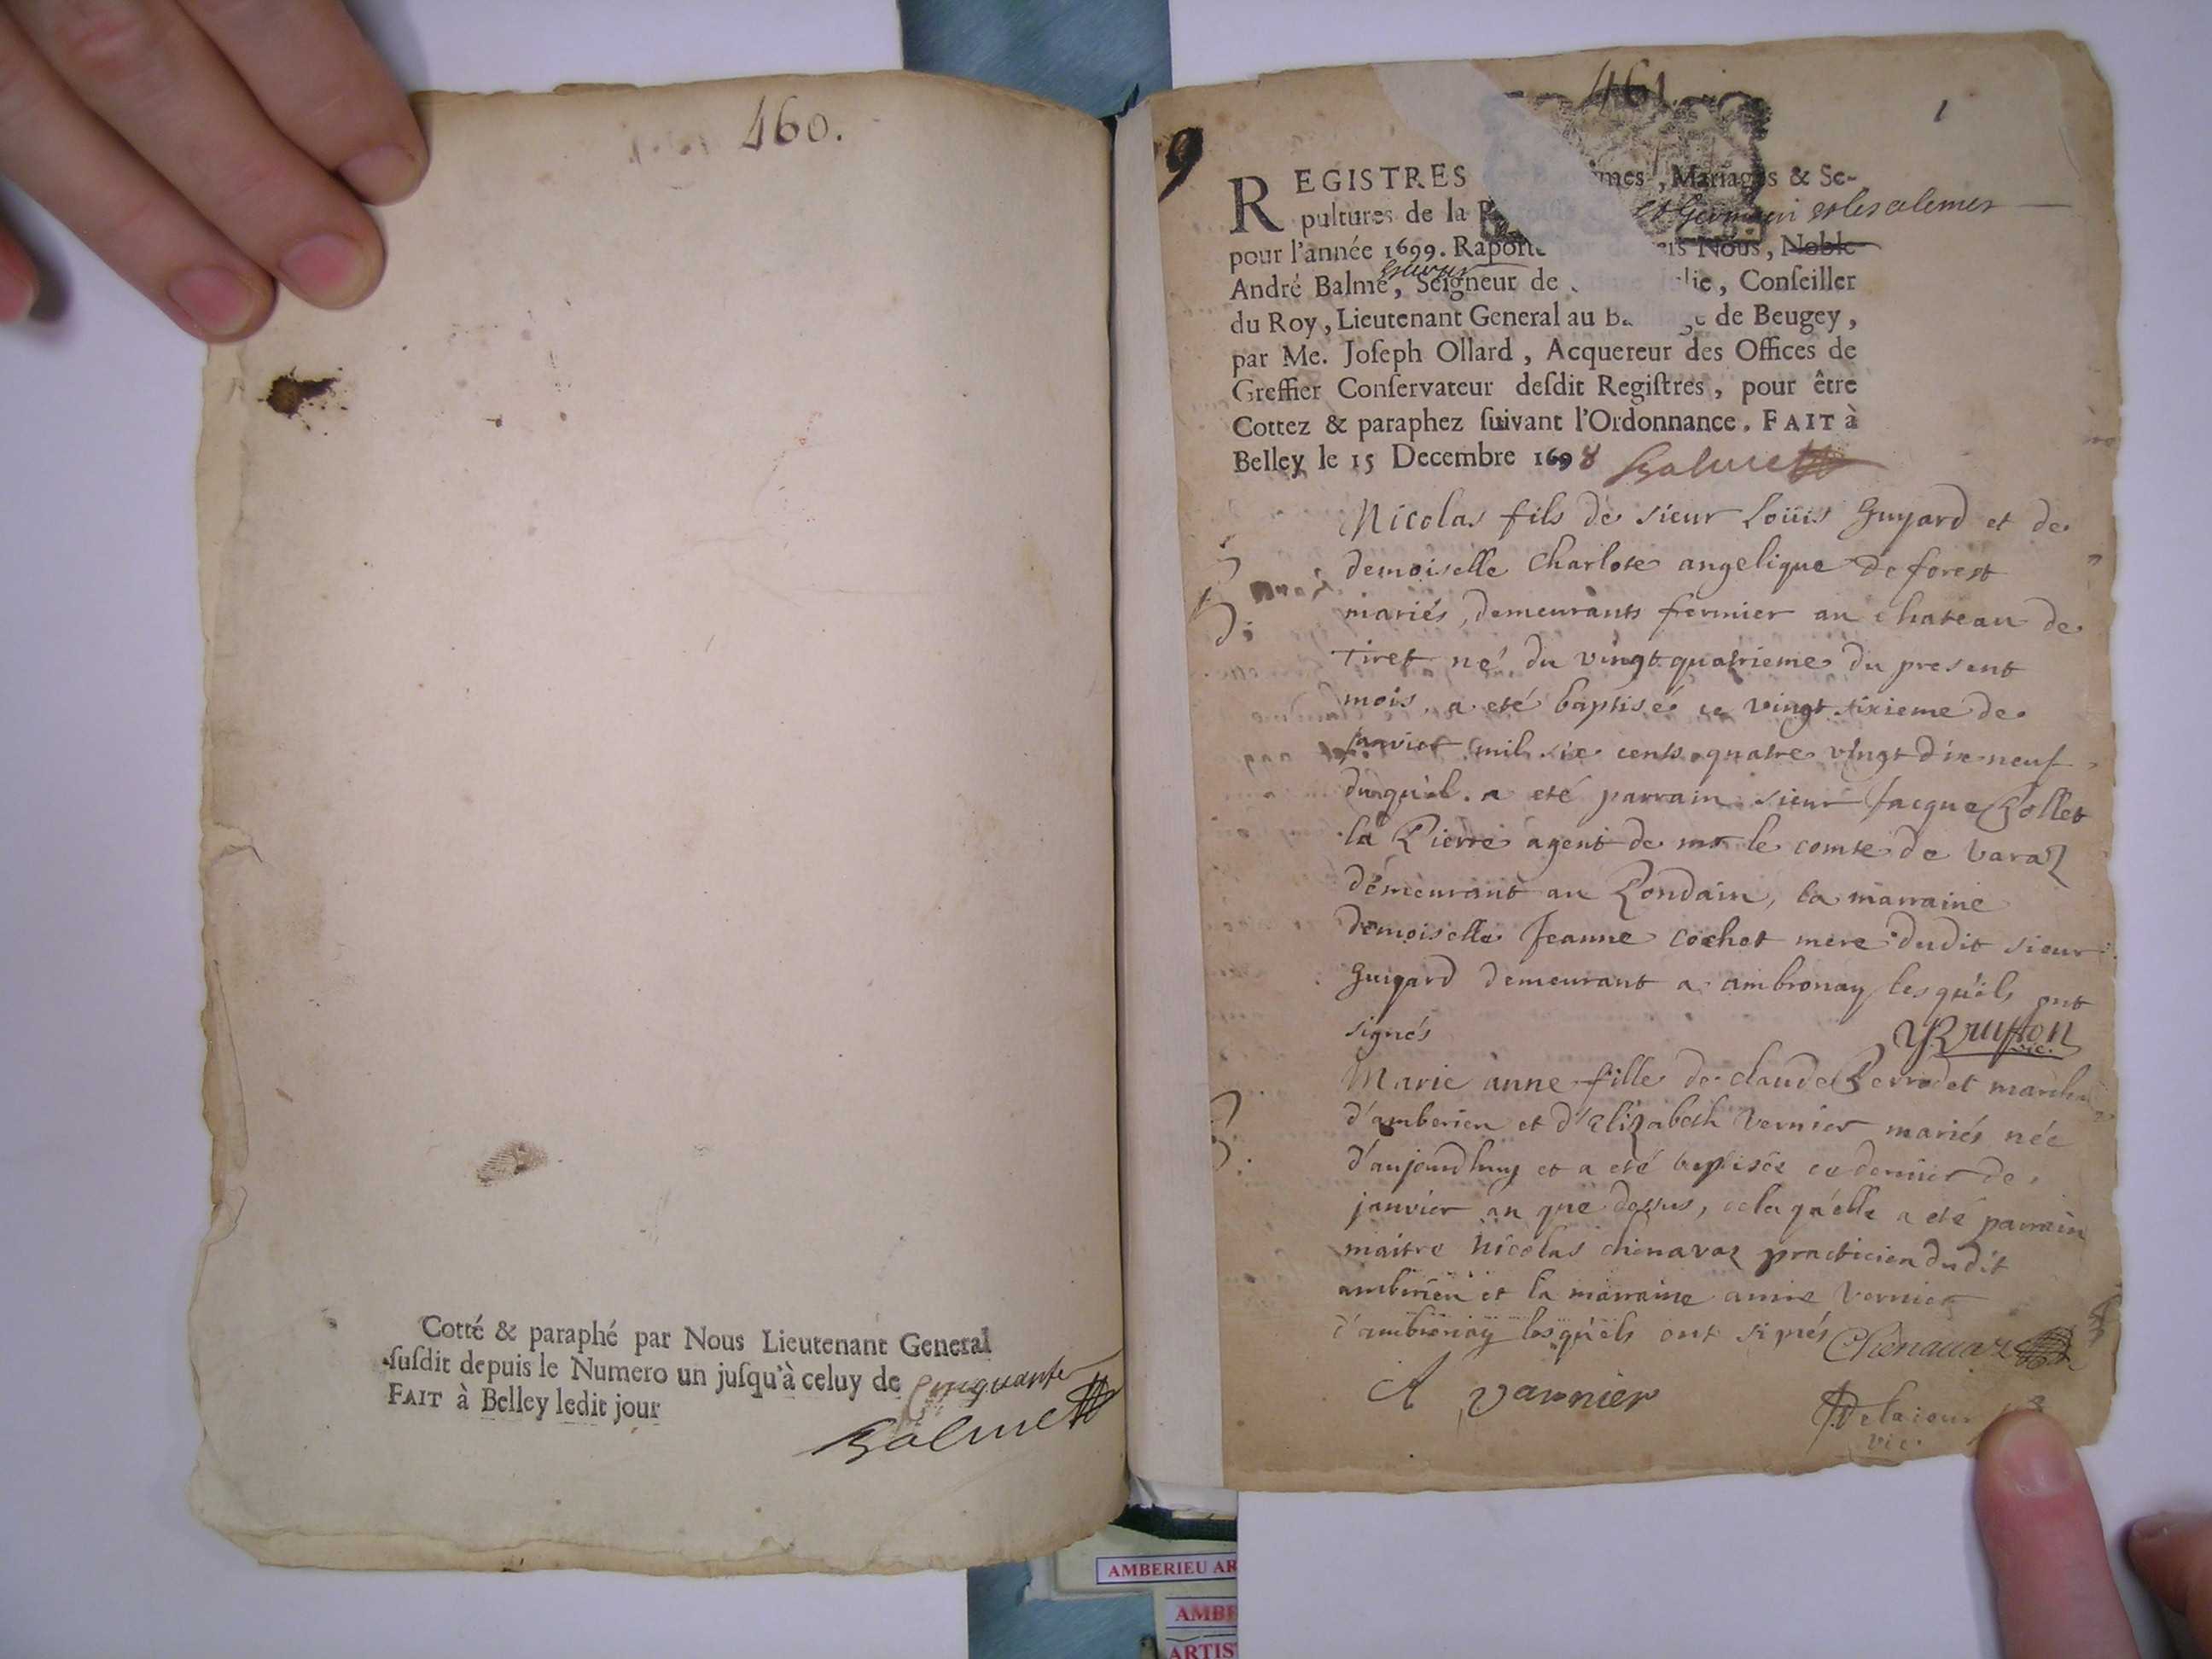 460.
Cotté & paraphé par Nous Lieutenant General
susdit depuis le Numero un jusqu'à celuy de Cinquante
FAIT à Belley ledit jour
Balme
461.
1
9
REGISTRES mes, Mariages & Se-
pultures de la P St Germain et les alemes
pour l'année 1699. Raporte is Nous, Noble
André Balme, Seigneur de lie, Conseiller
du Roy, Lieutenant General au Ba ge de Beugey,
par Me. Joseph Ollard, Acquereur des Offices de
Greffier Conservateur desdit Registres, pour être
Cottez & paraphez suivant l'Ordonnance. FAIT à
Belley le 15 Decembre 1698 Balme
Nicolas fils de sieur Loüis Guyard et de
demoiselle Charlote angelique de forest
mariés, demeurants fermier au chateau de
tiret né du vingt quatrieme du present
mois, a eté baptisé ce vingt sixieme de
janvier mil six cents quatre vingt dix neuf
duquel a eté parrain sieur Jacque Collet
la Pierre agent de mr le comte de varaz
demeurant au Pondain, la marraine
demoiselle Jeanne cochet mere dudit sieur
Guigard demeurant a ambronay lesquels ont
signés
Marie anne fille de claude Perrodet march
d'amberieu et d'Elizabeth vernier mariés née
d'aujourdhuy et a eté baptisée ce dernier de
janvier an que dessus, de laquelle a eté parrain
maitre Nicolas chenavaz practicien dudit
amberieu et la marraine anne vernier
d'ambronay lesquels ont signés Chenauaz
A varnier
Delaiou
vic.
AMBERIEU AR
AMBE
ARTIS